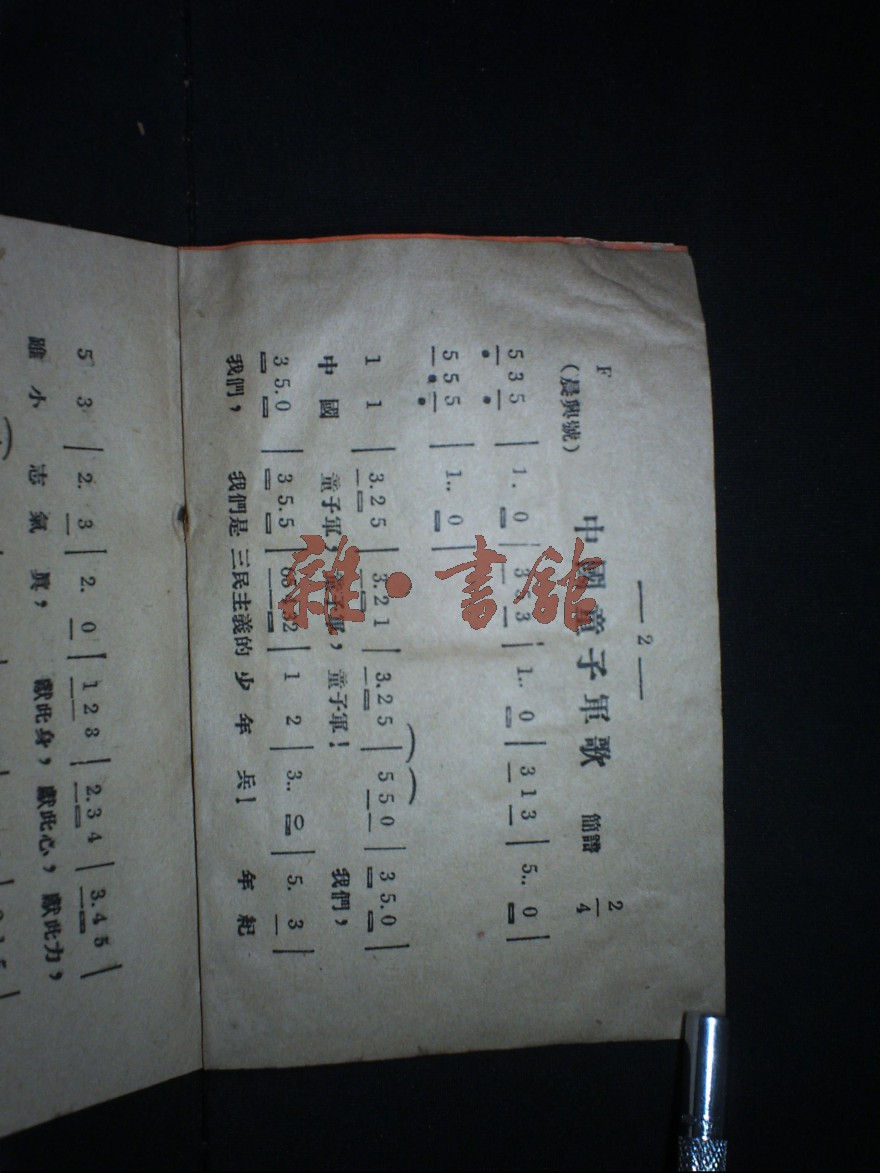 — 2 —
中國童子軍歌 簡譜 2/4
F
(晨興號)
5 3 5 | 1. 0 | 3 3 | 1.. 0 | 3 1 3 | 5.. 0 |
5 5 5 | 1.. 0 |
1 1 | 3.2 5 | 3.2 1 | 3.2 5 | 5 5 0 | 3 5.0 |
中國 童子軍，童子軍，童子軍！ 我們，
3 5.0 | 3 5.5 | 32 | 1 2 | 3.. 0 | 5. 3 |
我們， 我們是 三民主義的 少年兵！ 年紀
5 3 | 2. 3 | 2. 0 | 1 2 3 | 2.3 4 | 3.4 5 |
雖小 志氣真， 獻此身，獻此心，獻此力，
雜·書館